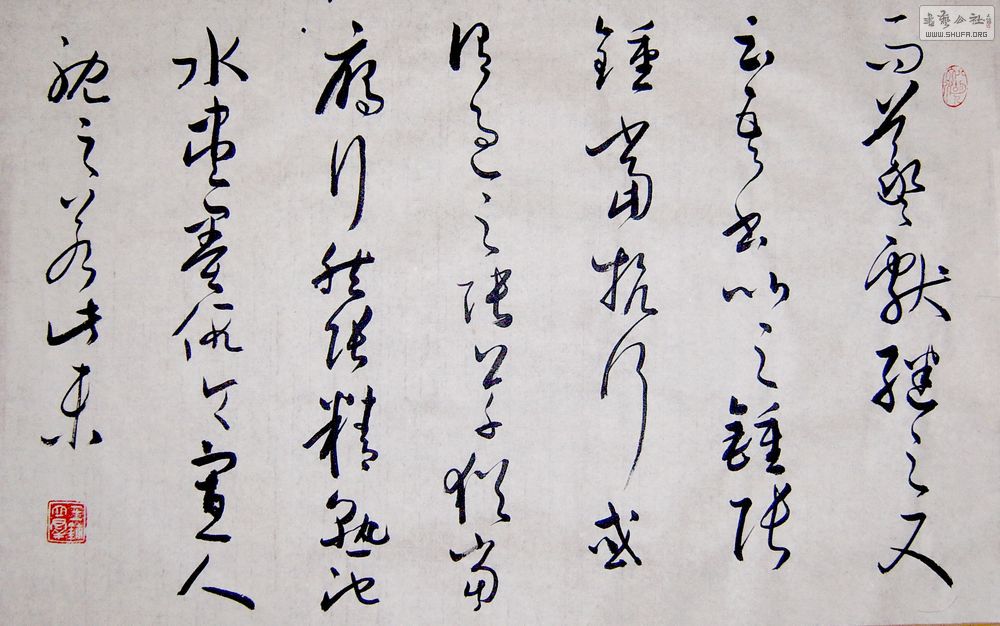 而羲獻繼之又
云吾書比之鍾張
鍾當抗行或
謂過之張草猶當
雁行然張精熟池
水盡墨假令寡人
耽之若此未
書藝公社
WWW.SHUFA.ORG